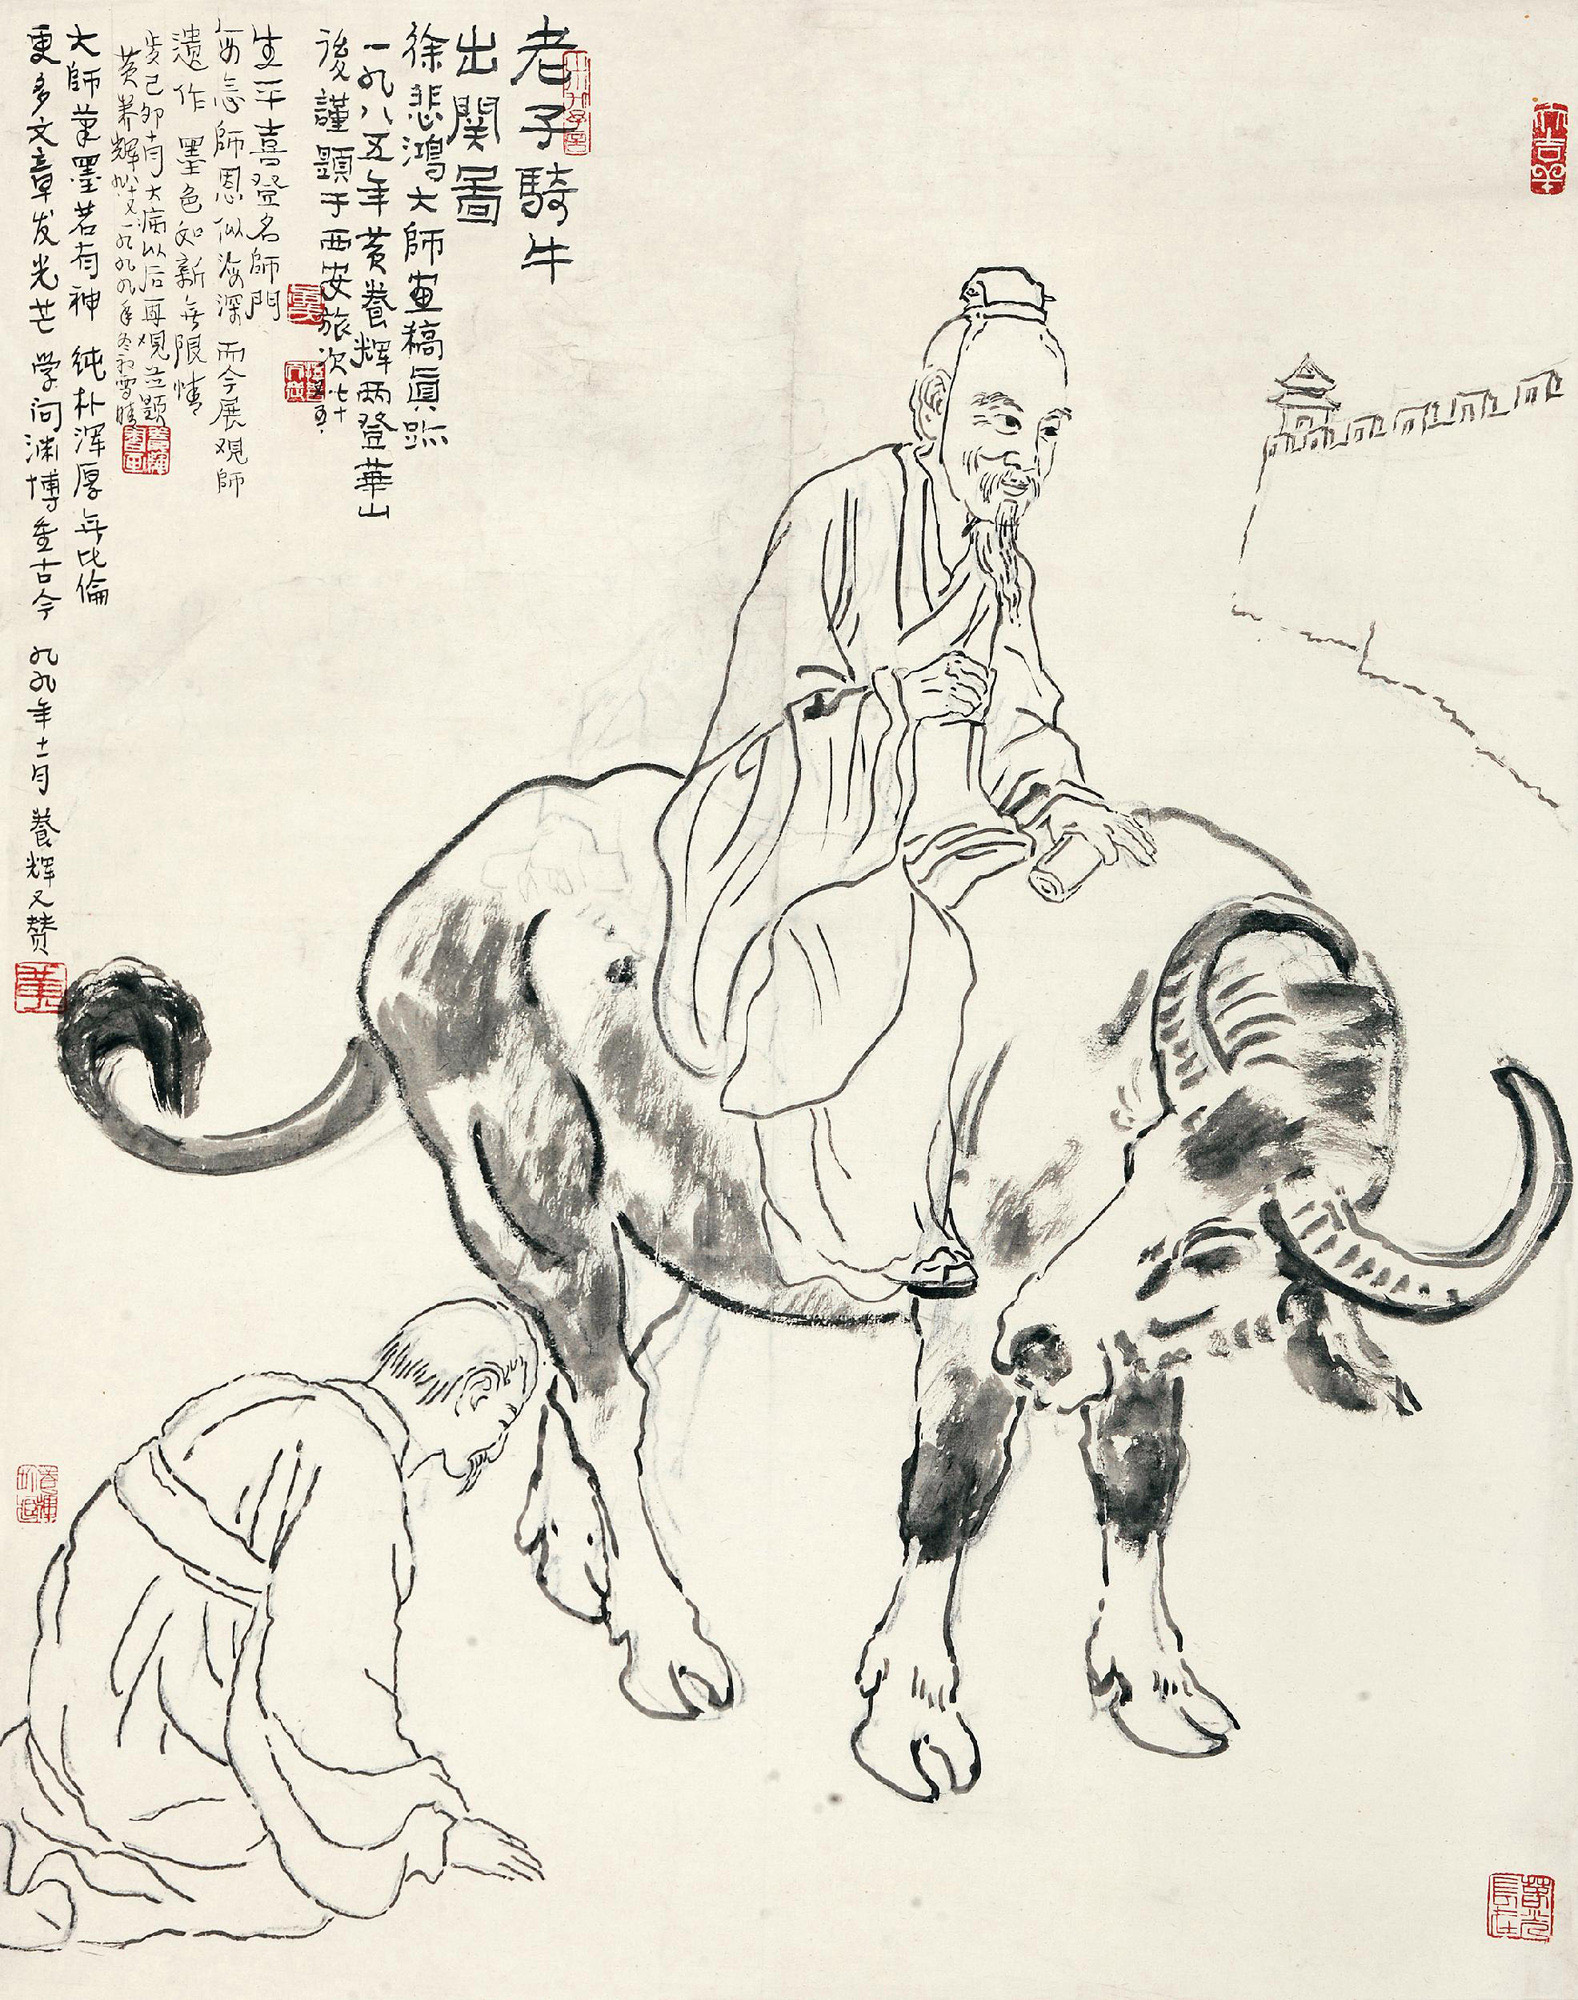 老子騎牛
出関圖
徐悲鴻大師画稿眞跡
一九八五年黄養輝兩登華山
後謹題于西安旅次七十
生平喜登名師門
每念師恩似海深而今展观師
遗作墨色如新無限情
大病以后再观并題
黄养辉一九九九年冬初雪晴
大師筆墨若有神純朴浑厚無比倫
更多文章发光芒学问渊博垂古今九九年十二月養辉又赞
大吉羊